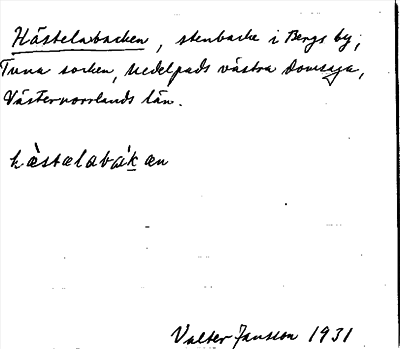 Hästelabacken, stenbacke i Bergs by,
Tuna socken, Medelpads västra domsaga,
Västernorrlands län.
hæ̀stælabák̲æn
Valter Jansson 1931